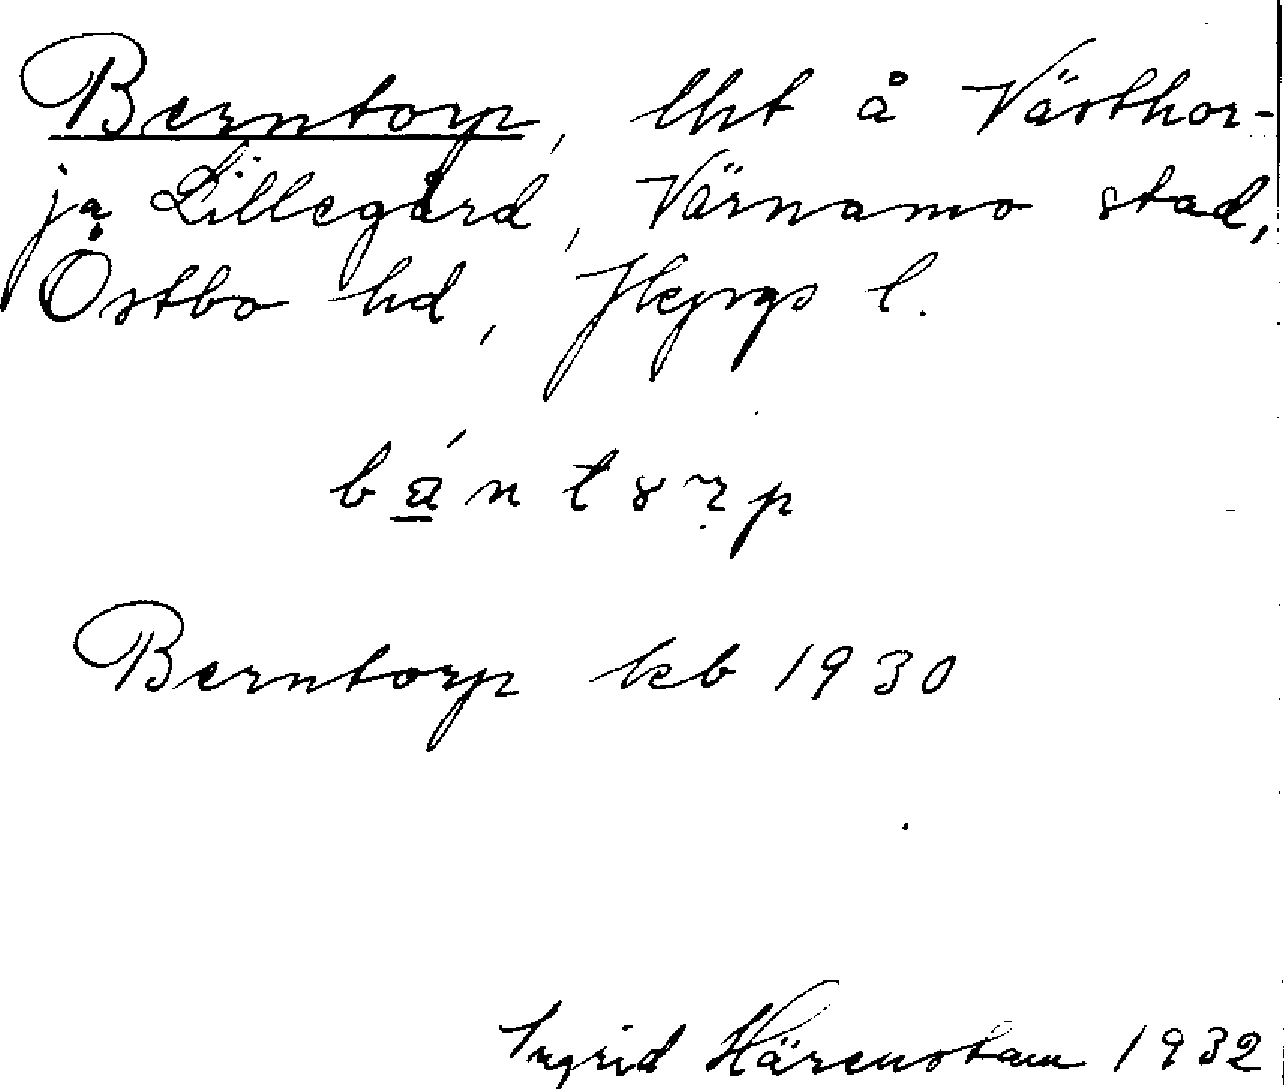 Berntorp, lht å Västhor-
ja Lillegård, Värnamo stad,
Östbo hd, Jkpgs l.
Berntorp kb 1930
Ingrid Härenstam 1932